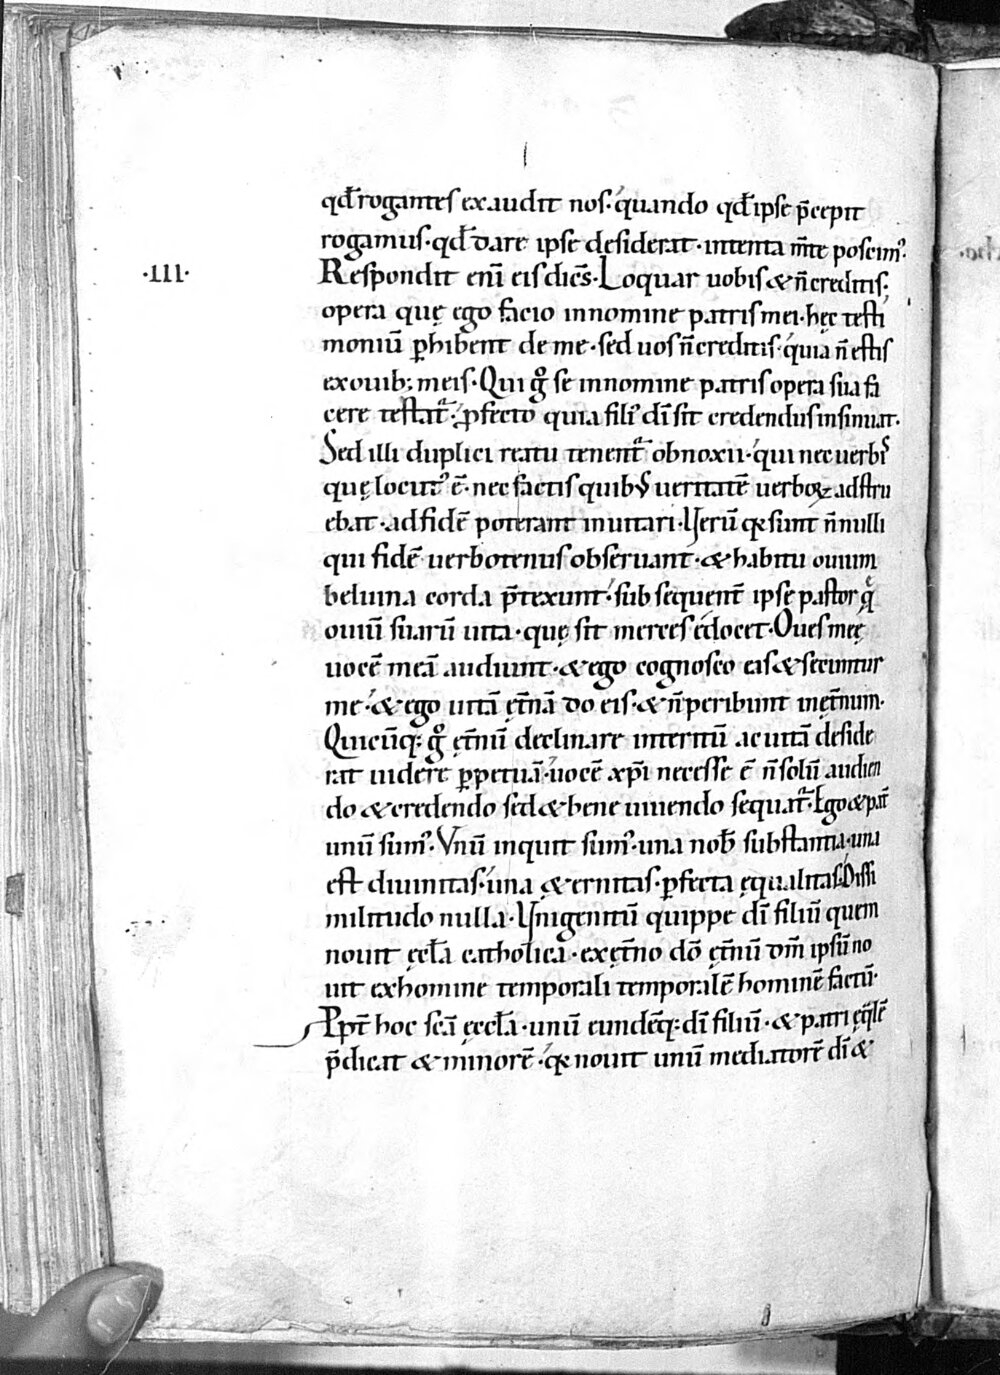 qd̄ rogantes exaudit nos· quando qd̄ ipse p̄cepit
rogamus· qd̄ dare ipse desiderat· intenta m̄te poscim᾿.
·III· Respondit eni̅ eis dice̅s· Loquar uobis & n̅ creditis;
opera quę ego facio in nomine patris mei· hęc testi
moniu̅ p̲hibent de me· sed uos n̅ creditis· quia n̅ estis
ex ouib; meis· Qui gͦ se in nomine patris opera sua fa
cere testat᷑· ꝓfecto quia fili᾿ di̅ sit credendus insinuat.
Sed illi duplici reatu tenent᷑ obnoxii· qui nec uerbis
quę locut᾿ e̅· nec factis quibus ueritate̅ uerboꝝ adstru
ebat· ad fide̅ poterant inuitari· Ueru̅ qa sunt n̅nulli
qui fide̅ uerbotenus obseruant· & habitu ouium
beluina corda p̄texunt· subsequent̅ ipse pastor quę
ouiu̅ suaru̅ uita· quę sit merces edocet· Oues meę
uoce̅ mea̅ audiunt· & ego cognosco eas & secuntur
me· & ego uita̅ ęt̅na̅ do eis· & n̅ peribunt in ęt̅num.
Quicu̅q; gͦ ęt̅nu̅ declinare interitu̅ ac uita̅ deside
rat uidere p̲petua̅· uoce̅ xp̅i necesse e̅ n̅ solu̅ audien
do & credendo sed & bene uiuendo sequat᷑· Ego & pat̅
unu̅ sum᾿· Unu̅ inquit sum᾿· una nob̅ substantia· una
est diuinitas· una ę&ernitas· p̲fecta ęqualitas· Dissi
militudo nulla· Unigenitu̅ quippe di̅ filiu̅ quem
nouit ęcl̅a catholica· ex ęt̅no do̅ ęt̅nu̅ dm̅ ipsu̅ no
uit ex homine temporali temporale̅ homine̅ factu̅·
Ppt̅ hoc sc̅a ęccl̅a· unu̅ eunde̅q; di̅ filiu̅· & patri ęq̅le̅
p̄dicat & minore̅· qa nouit unu̅ mediatore̅ di̅ &